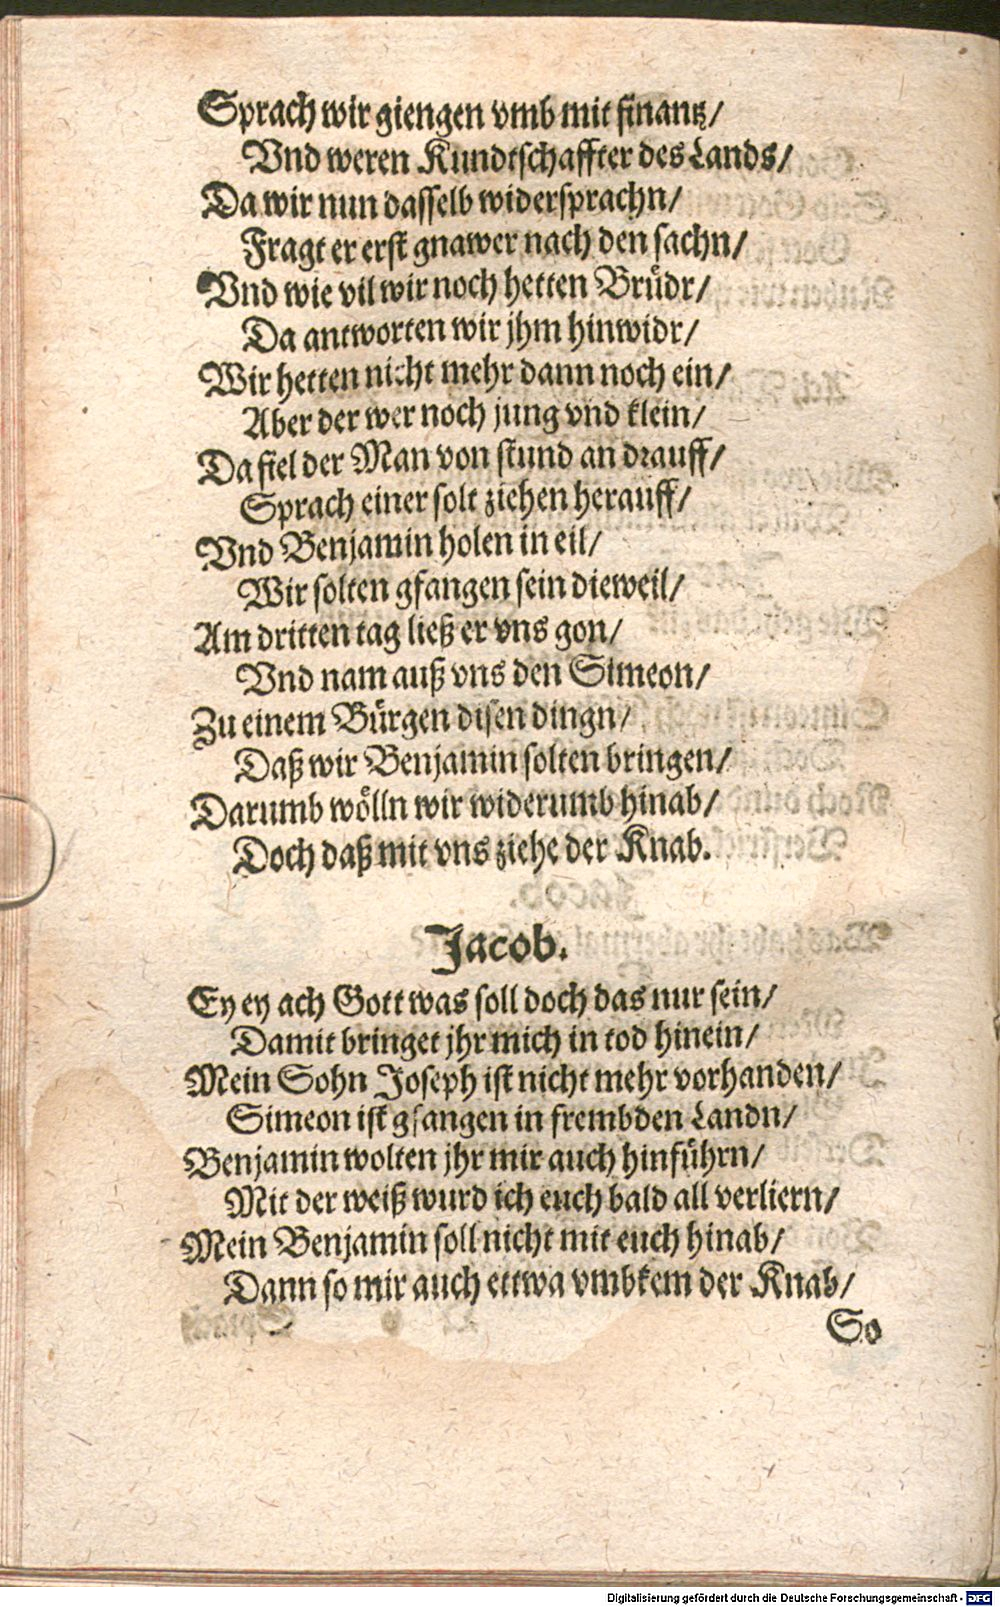 Sprach wir giengen vmb mit finantz/
Vnd weren Kundtschaffter des Lands/
Da wir nun dasselb widersprachn/
Fragt er erst gnawer nach den sachn/
Vnd wie vil wir noch hetten Brüdr/
Da antworten wir jhm hinwidr/
Wir hetten nicht mehr dann noch ein/
Aber der wer noch jung vnd klein/
Da fiel der Man von stund an drauff/
Sprach einer solt ziehen herauff/
Vnd Benjamin holen in eil/
Wir solten gfangen sein dieweil/
Am dritten tag ließ er vns gon/
Vnd nam auß vns den Simeon/
Zu einem Bürgen disen dingn/
Daß wir Benjamin solten bringen/
Darumb wölln wir widerumb hinab/
Doch daß mit vns ziehe der Knab.
Jacob.
Ey ey ach Gott was soll doch das nur sein/
Damit bringet jhr mich in tod hinein/
Mein Sohn Joseph ist nicht mehr vorhanden/
Simeon ist gfangen in frembden Landn/
Benjamin wolten jhr mir auch hinführn/
Mit der weiß wurd ich euch bald all verliern/
Mein Benjamin soll nicht mit euch hinab/
Dann so mir auch ettwa vmbkem der Knab/
So
Digitalisierung gefördert durch die Deutsche Forschungsgemeinschaft - DFG